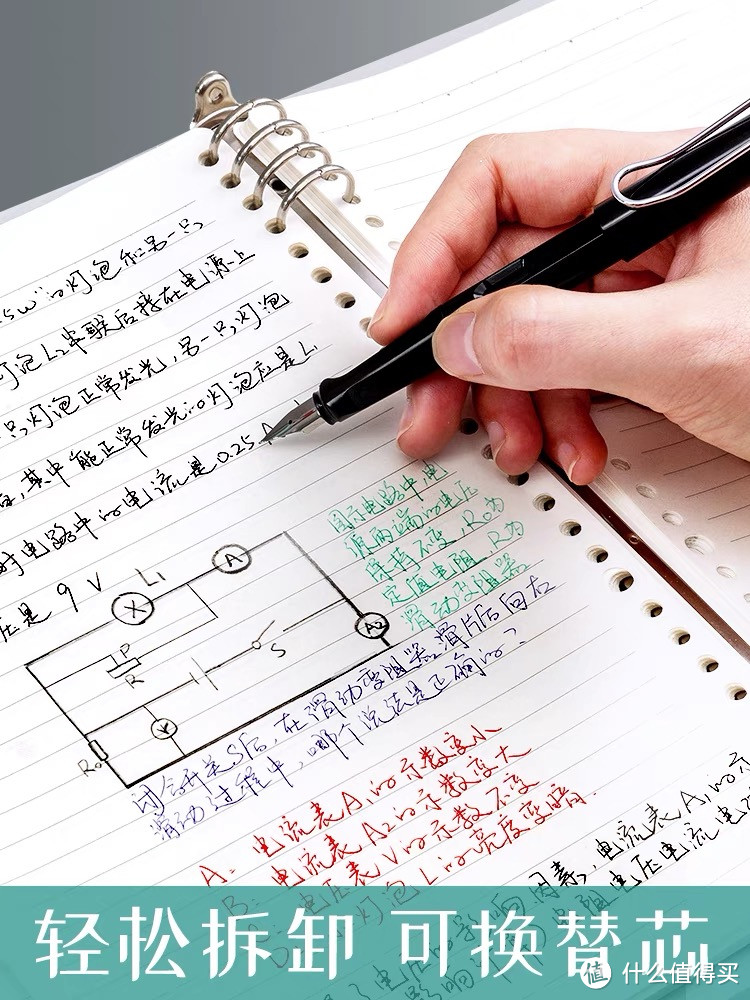 5W"的灯泡和另一只
灯泡L₂串联后接在电源上
只灯泡正常发光,另一只灯泡
,其中能正常发光的灯泡应是L₁
时电路中的电流是0.25A
压是9V
L₁
A
X
P
R
S
A2
V
R₀
图所示电路中,电
源两端的电压
保持不变,R₀为
定值电阻,R为
滑动变阻器
闭合开关S后,在滑动变阻器滑片P向右
滑动过程中,哪个说法是正确的?
A:电流表A₁的示数变小
B:电流表A2的示数变大
电压表V的示数不变
灯泡L的亮度变暗.
因素,电流表A₁的示
电压电流
轻松拆卸 可换替芯
值 什么值得买